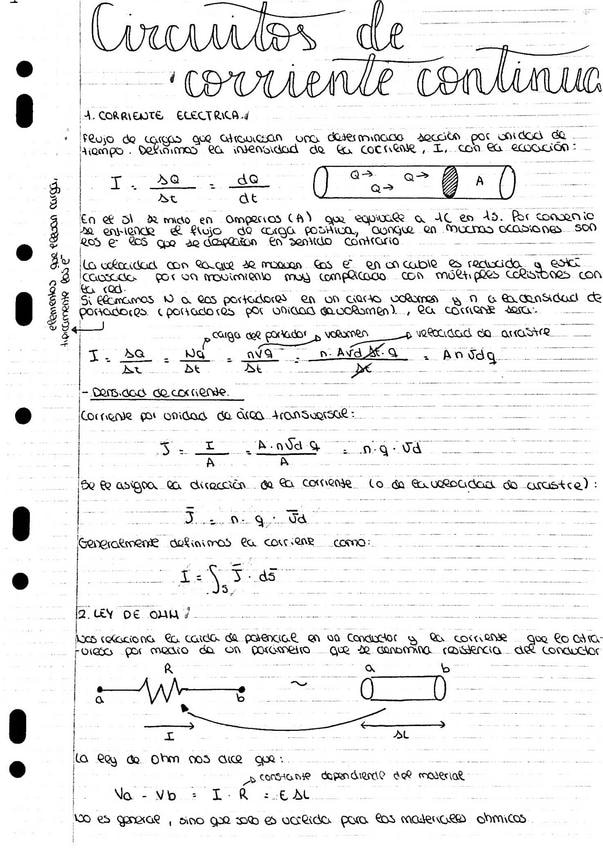 Circuitos de
corriente continua
1. CORRIENTE ELECTRICA.
Flujo de cargas que atraviesan una determinada sección por unidad de
tiempo. Definimos la intensidad de la corriente, I, con la ecuación:
I = ΔQ/Δt = dQ/dt
Q→ Q→ Q→ A
En el SI se mide en amperios (A) que equivale a 1C en 1s. Por convenio
se entiende el flujo de carga positiva, aunque en muchas ocasiones son
los e⁻ los que se desplazan en sentido contrario
La velocidad con la que se mueven los e⁻ en un cable es reducida y está
causada por un movimiento muy complicado con múltiples colisiones con
la red.
Si llamamos N a los portadores en un cierto volumen y n a la densidad de
portadores (portadores por unidad de volumen), la corriente será:
elementos que llevan carga,
típicamente los e⁻
carga del portador volumen velocidad de arrastre
I = ΔQ/Δt = Nq/Δt = nVq/Δt = n·Avd Δt·q/Δt = Anvdq
- Densidad de corriente.
Corriente por unidad de área transversal:
J = I/A = A·nvd q/A = n·q·vd
Se le asigna la dirección de la corriente (o de la velocidad de arrastre):
J̄ = n·q·v̄d
Generalmente definimos la corriente como:
I = ∫s J̄·ds̄
2. LEY DE OHM
Nos relaciona la caida de potencial en un conductor y la corriente que lo atra-
-viesa por medio de un parámetro que se denomina resistencia del conductor
R a b
a b ~
I ΔL
La ley de Ohm nos dice que:
constante dependiente del material
Va - Vb = I·R = EΔL
No es general, sino que solo es válida para los materiales ohmicos